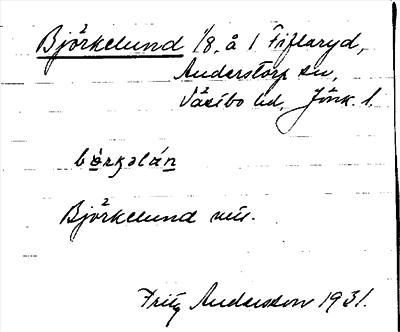 Björkelund 1/8, å 1 Fiflaryd,
Anderstorp sn,
Västbo hd, Jönk. l.
börkəlán
Björkelund
Fritz Andersson 1931.